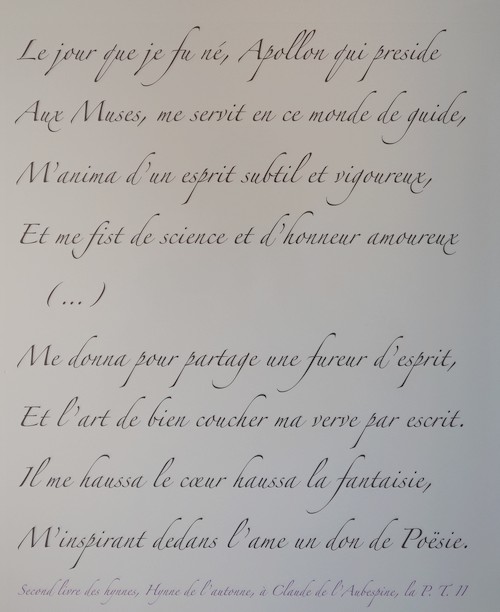 Le jour que je fu né, Apollon qui preside
Aux Muses, me servit en ce monde de guide,
M'anima d'un esprit subtil et vigoureux,
Et me fist de science et d'honneur amoureux
(...)
Me donna pour partage une fureur d'esprit,
Et l'art de bien coucher ma verve par escrit.
Il me haussa le cœur haussa la fantaisie,
M'inspirant dedans l'ame un don de Poësie.
Second livre des hynnes, Hynne de l'autonne, à Claude de l'Aubespine, la P. T. II